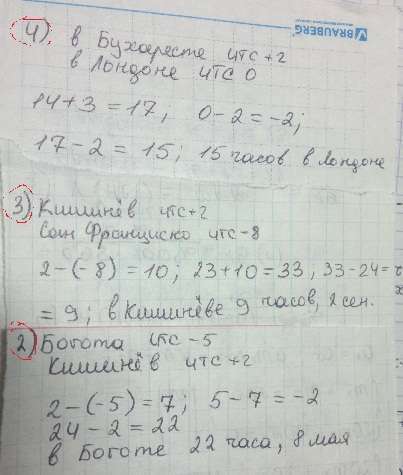 BRAUBERG
4) в Бухаресте UTC+2
в Лондоне UTC 0
14+3=17; 0-2=-2;
17-2=15; 15 часов в Лондоне
3) Кишинёв UTC+2
Сан Франциско UTC-8
2-(-8)=10; 23+10=33, 33-24=
=9; в Кишинёве 9 часов, 2 сен.
2) Богота UTC-5
Кишинёв UTC+2
2-(-5)=7; 5-7=-2
24-2=22
в Боготе 22 часа, 8 мая